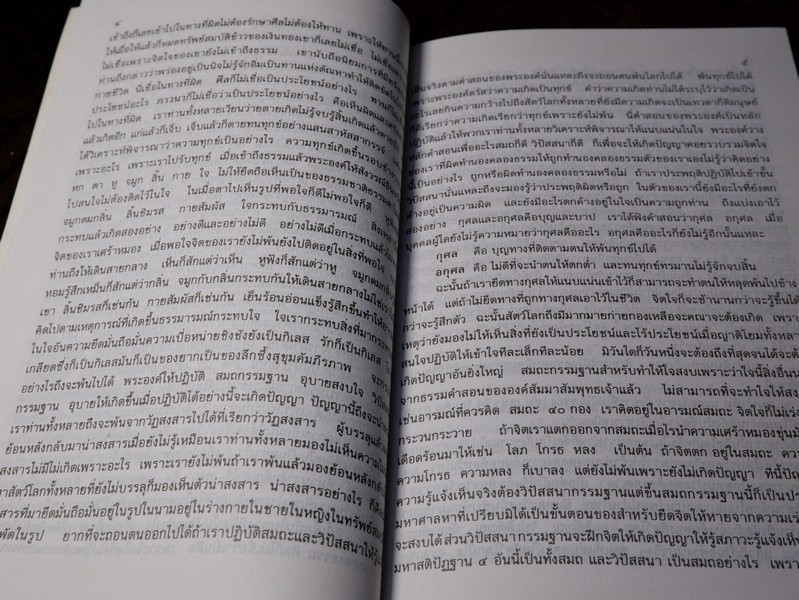 ๔
เข้าถึงก็เลยเข้าไปในทางที่ผิดไม่ต้องรักษาศีลไม่ต้องให้ทาน เพราะให้ทาน
ให้เมื่อให้แล้วก็หมดทรัพย์สมบัติข้าวของเงินทองเขาก็เลยไม่เชื่อ
ไม่เชื่อเพราะจิตใจของเขายังไม่เข้าถึงธรรม เขานับถือนิยมการที่
ท่านถึงกล่าวว่าพร่องอยู่เป็นนิจไม่รู้จักอิ่มเป็นทานแห่งตัณหาทำให้
กายชีวิต นี่เชื่อในทางที่ผิด ศีลก็ไม่เชื่อเป็นประโยชน์อย่างไร
ประโยชน์อะไร ภาวนาก็ไม่เชื่อว่าเป็นประโยชน์อย่างไร คือเห็นผิด
ไปในทางที่ผิด เราท่านทั้งหลายเวียนว่ายตายเกิดไม่รู้จบรู้สิ้นเกิดแล้ว
แล้วเกิดอีก แก่แล้วก็เจ็บ เจ็บแล้วก็ตายทนทุกข์อย่างแสนสาหัสสากรรจ์
ได้วิเคราะห์พิจารณาว่าความทุกข์เป็นอย่างไร ความทุกข์เกิดขึ้นรอบข้าง
เพราะอะไร เพราะเราไปรับทุกข์ เมื่อเข้าถึงธรรมแล้วพระองค์ให้สังวรณ์
หก ตา หู จมูก ลิ้น กาย ใจ ไม่ให้ยึดถือเห็นเป็นของธรรมชาติธรรม
ไปสนใจไม่ต้องติดไว้ในใจ ในเมื่อตาไปเห็นรูปที่พอใจก็ดีไม่พอใจก็ดี
จมูกดมกลิ่น ลิ้นชิมรส กายสัมผัส ใจกระทบกับธรรมารมณ์
กระทบแล้วเกิดสองอย่าง อย่างดีและอย่างไม่ดี อย่างไม่ดีเมื่อกระทบแล้ว
จิตของเราเศร้าหมอง เมื่อพอใจจิตของเรายังไม่พ้นยังไปติดอยู่ในสิ่งที่พอใจ
ท่านถึงให้เดินสายกลาง เห็นก็สักแต่ว่าเห็น หูฟังก็สักแต่ว่าหู จมูกดม
หอมรู้สึกเหม็นก็สักแต่ว่ากลิ่น จมูกกับกลิ่นกระทบกันให้เดินสายกลางไม่ใช่
เขา ลิ้นชิมรสก็เช่นกัน กายสัมผัสก็เช่นกัน เย็นร้อนอ่อนแข็งรู้สึกขึ้นทำให้
คิดไปตามเหตุการณ์ที่เกิดขึ้นธรรมารมณ์กระทบใจ ใจเรากระทบสิ่งที่มา
ในใจอันความยึดมั่นถือมั่นความเบื่อหน่ายชิงชังยังเป็นกิเลส รักก็เป็นกิเลส
เกลียดซึ่งก็เป็นกิเลสมันก็เป็นของยากเป็นของลึกซึ้งสุขุมคัมภีรภาพ
อย่างไรถึงจะพ้นไปได้ พระองค์ให้ปฏิบัติ สมถกรรมฐาน อุบายสงบใจ
กรรมฐาน อุบายให้เกิดขึ้นเมื่อปฏิบัติได้อย่างนี้จะเกิดปัญญา ปัญญานี้ถึงจะ
เราท่านทั้งหลายถึงจะพ้นจากวัฏสงสารไปได้ที่เรียกว่าวัฏสงสาร ผู้บรรลุแล้ว
ย้อนหลังกลับมาน่าสงสารเมื่อยังไม่รู้เหมือนเราท่านทั้งหลายมองไม่เห็นความ
สงสารไม่มีไม่เกิดเพราะอะไร เพราะเรายังไม่พ้นถ้าเราพ้นแล้วมองย้อนหลัง
สัตว์โลกทั้งหลายที่ยังไม่บรรลุก็มองเห็นตัวน่าสงสาร น่าสงสารอย่างไร
สารที่มายึดมั่นถือมั่นอยู่ในรูปในนามอยู่ในร่างกายในชายในหญิงในทรัพย์
พัดในรูป ยากที่จะถอนตนออกไปได้ถ้าเราปฏิบัติสมถะและวิปัสสนาให้รู้
๕
เห็นจริงตามคำสอนของพระองค์นั่นแหละถึงจะถอนตนพ้นโลกไปได้ พ้นทุกข์ไปได้
เพราะพระองค์ตรัสว่าความเกิดเป็นทุกข์ คำว่าความเกิดท่านไม่ได้ระบุไว้ว่าเกิดเป็น
อะไรเลยกินความกว้างไปถึงสัตว์โลกทั้งหลายที่ยังมีความเกิดจะเป็นเทวดาก็ดีมนุษย์
ก็ดีเรียกว่าความเกิดเรียกว่าทุกข์เพราะยังไม่พ้น นี่คำสอนของพระองค์เป็นหลัก
ปฏิบัติแล้วให้พวกเราท่านทั้งหลายวิเคราะห์พิจารณาให้แนบแน่นในใจ พระองค์วาง
หลักคำสอนเพื่ออะไร สมถก็ดี วิปัสสนาก็ดี ก็เพื่อจะให้เกิดปัญญาคอยรวบรวมจิตใจ
ของเราที่ผิดทำนองคลองธรรมให้ถูกทำนองคลองธรรมตัวของเราเองไม่รู้ว่าคิดอย่าง
นี้เป็นอย่างไร ถูกหรือผิดทำนองคลองธรรมหรือไม่ ถ้าเราประพฤติปฏิบัติไปเข้าขั้น
วิปัสสนานั่นแหละถึงจะมองรู้ว่าประพฤติผิดหรือถูก ในตัวของเรานี้ยังมีอะไรที่ยังตก
ค้างอยู่เป็นความผิด และยังมีอะไรตกค้างอยู่ในใจเป็นความถูกท่าน ถึงแบ่งเอาไว้
สองอย่าง กุศลและอกุศลคือบุญและบาป เราได้ฟังคำสอนว่ากุศล อกุศล เมื่อ
บุคคลผู้ใดยังไม่รู้ความหมายว่ากุศลคืออะไร อกุศลคืออะไรก็ยังไม่รู้อีกนั้นแหละ
กุศล คือ บุญทางที่ติดตามตนให้พ้นทุกข์ไปได้
อกุศล คือ ไม่ดีที่จะนำตนให้ตกต่ำ และทนทุกข์ทรมานไม่รู้จักจบสิ้น
ฉะนั้นถ้าเรายึดทางกุศลให้แน่นเข้าไว้ก็สามารถจะทำตนให้หลุดพ้นไปข้าง
หน้าได้ แต่ถ้าไม่ยึดทางที่ถูกทางกุศลเอาไว้ในชีวิต จิตใจก็จะช้านานกว่าจะรู้ขึ้นได้
กว่าจะรู้สึกตัว ฉะนั้นสัตว์โลกถึงมีมากมายก่ายกองเหลือจะคณนาจะต้องเกิด
เหตุว่ายังมองไม่ให้เห็นสิ่งที่ยังเป็นประโยชน์และไร้ประโยชน์เมื่อญาติโยมทั้งหลาย
สนใจปฏิบัติให้เข้าใจทีละเล็กทีละน้อย มิวันใดก็วันหนึ่งจะต้องถึงที่สุดจนได้จะต้อง
เกิดปัญญาอันยิ่งใหญ่ สมถะกรรมฐานสำหรับทำให้ใจสงบเพราะว่าใจนี้สิ่งอื่น
จากธรรมคำสอนขององค์สัมมาสัมพุทธเจ้าแล้ว ไม่สามารถที่จะทำใจให้สงบ
เช่นอารมณ์ที่ควรคิด สมถะ ๔๐ กอง เราคิดอยู่ในอารมณ์สมถะ จิตใจก็ไม่เร่
กระวนกระวาย ถ้าจิตเราแตกออกจากสมถะเมื่อไรนำความเศร้าหมองขุ่น
เดือดร้อนมาให้เช่น โลภ โกรธ หลง เป็นต้น ถ้าจิตตกอยู่ในสมถะ
ความโกรธ ความหลง ก็เบาลง แต่ยังไม่พ้นเพราะยังไม่เกิดปัญญา ทีนี้ปัญญา
ความรู้แจ้งเห็นจริงต้องวิปัสสนากรรมฐานแต่ขึ้นสมถกรรมฐานนี้ก็เป็น
มหาศาลหาที่เปรียบมิได้เป็นขั้นตอนของสำหรับยึดจิตให้หายจากความ
จะสงบได้ ส่วนวิปัสสนากรรมฐานจะฝึกจิตให้เกิดปัญญาให้รู้สภาวะรู้แจ้งเห็น
มหาสติปัฏฐาน ๔ อันนี้เป็นทั้งสมถ และวิปัสสนา เป็นสมถอย่างไร